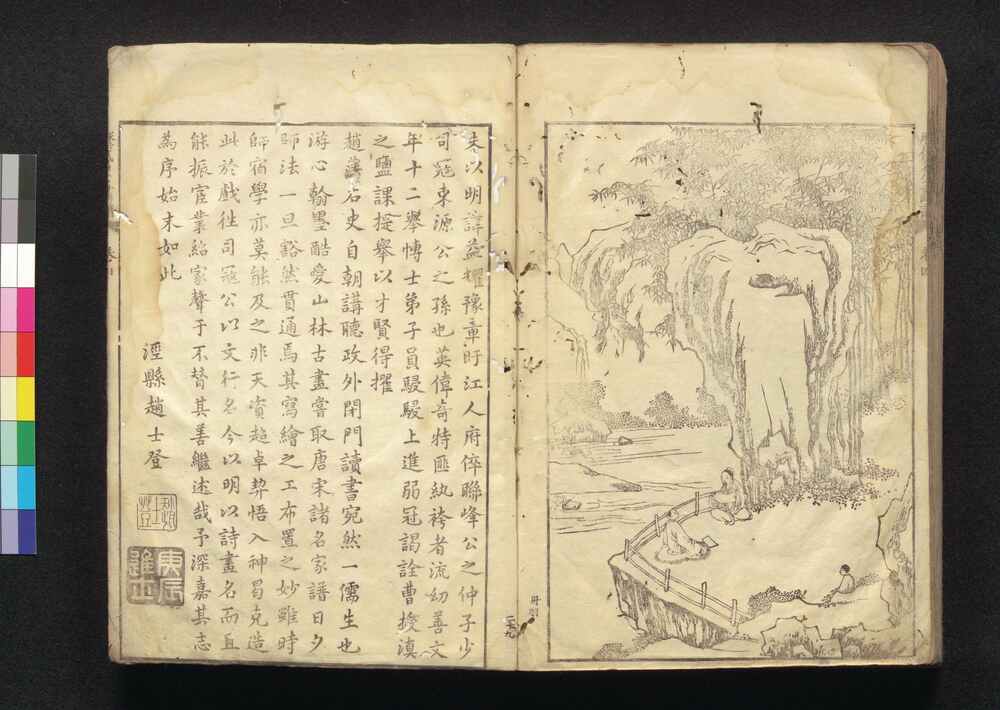 朱以明諱益耀豫章盱江人府倅聯峰公之仲子少
司寇東源公之孫也英偉奇特匪紈袴者流幼善文
年十二舉博士弟子員駸駸上進弱冠謁詮曹授滇
之鹽課提舉以才賢得擢
趙藩石史自朝講聽政外閉門讀書宛然一儒生也
游心翰墨酷愛山林古畫嘗取唐宋諸名家譜日夕
師法一旦豁然貫通焉其寫繪之工布置之妙雖時
師宿學亦莫能及之非天資超卓契悟入神曷克造
此於戲徃司寇公以文行名今以明以詩畫名而且
能振宦業紹家聲于不替其善繼述哉予深嘉其志
為序始末如此
涇縣趙士登
庚辰進士